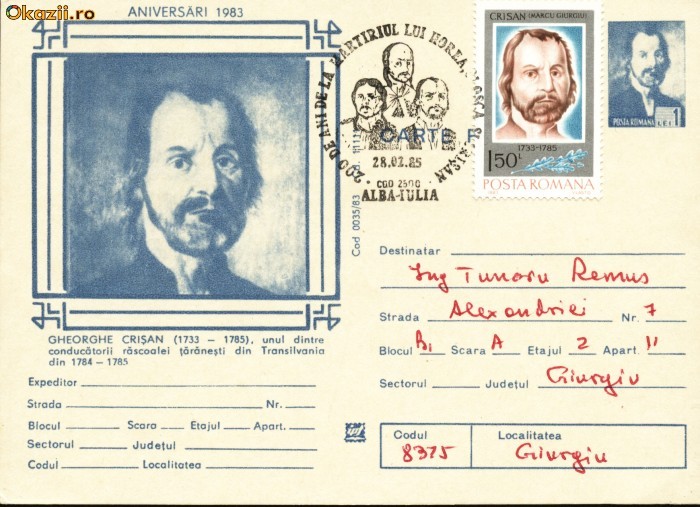 Okazii.ro
ANIVERSĂRI 1983
GHEORGHE CRIȘAN (1733 – 1785), unul dintre
conducătorii răscoalei țărănești din Transilvania
din 1784 – 1785
Expeditor
Strada Nr.
Blocul Scara Etajul Apart.
Sectorul Județul
Codul Localitatea
Cod 0035/83
200 DE ANI DE LA MARTIRIUL LUI HOREA, CLOȘCA ȘI CRIȘAN
28.02.85
COD 2500
ALBA-IULIA
CARTE P
CRIȘAN (MARCU GIURGIU)
1733-1785
1,50L
POSTA ROMANA
POSTA ROMANA 1 LEI
Destinatar
Ing Tunaru Remus
Strada Alexandriei Nr. 7
Blocul B1 Scara A Etajul 2 Apart. 11
Sectorul Județul Giurgiu
Codul Localitatea
8375 Giurgiu